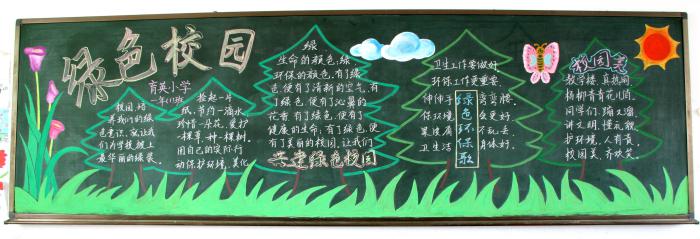 绿色校园
育英小学
一年(1)班
校园,培
养我们的绿
色意识,就让我
们为学校披上
最华丽的绿装。
捡起一片
纸,节约一滴水
珍惜一朵花,爱护
一棵草,种一棵树,
用自己的实际行
动保护环境,美化
绿
生命的颜色,绿
环保的颜色,有了绿
色,便有了清新的空气,有
了绿色,便有了沁鼻的
花香,有了绿色,便有了
健康的生命,有了绿色,便
有了美丽的校园,让我们
共建绿色校园
卫生工作要做好
环保工作更重要
伸伸手
保环境
果皮屑
卫生活
绿色环保歌
弯弯腰。
会更好
不乱丢。
身体好。
校园美
教学楼,真热闹,
杨柳青青花儿俏。
同学们,
讲文明,懂礼貌
护环境,人有责
校园美,齐欢笑。